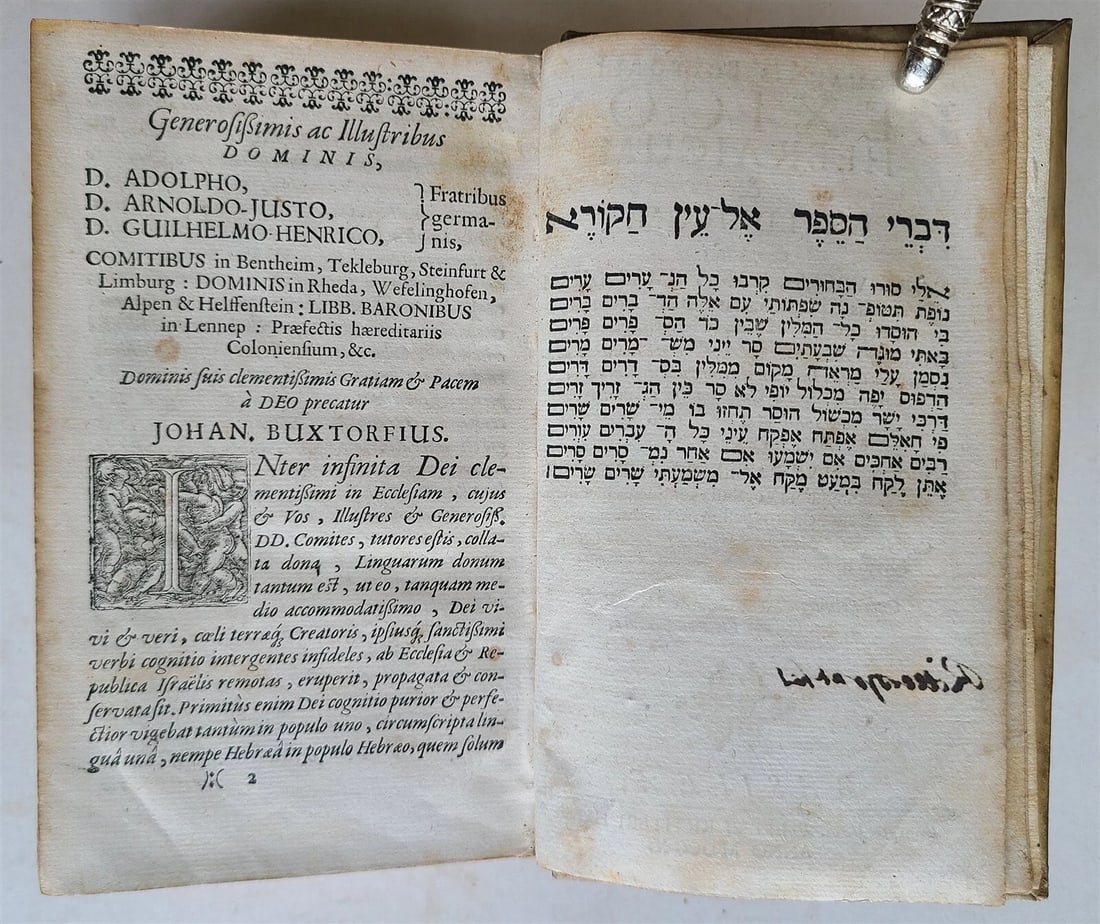 Generoſiſsimis ac Illuſtribus
DOMINIS,
D. ADOLPHO,
D. ARNOLDO-JUSTO,
D. GUILHELMO-HENRICO,
Fratribus
germa-
nis,
COMITIBUS in Bentheim, Tekleburg, Steinfurt &
Limburg : DOMINIS in Rheda, Weſelinghofen,
Alpen & Helffenſtein : LIBB. BARONIBUS
in Lennep : Præfectis hæreditariis
Colonienſium, &c.
Dominis ſuis clementiſsimis Gratiam & Pacem
à DEO precatur
JOHAN. BUXTORFIUS.
INter infinita Dei cle-
mentiſsimi in Eccleſiam, cujus
& Vos, Illuſtres & Generoſiſs.
DD. Comites, tutores eſtis, colla-
ta dona, Linguarum donum
tantum eſt, ut eo, tanquam me-
dio accommodatiſsimo, Dei vi-
vi & veri, cœli terræq́; Creatoris, ipſiusq́; ſanctiſsimi
verbi cognitio inter gentes infideles, ab Eccleſia & Re-
publica Iſraëlis remotas, eruperit, propagata & con-
ſervata ſit. Primitùs enim Dei cognitio purior & perfe-
ctior vigebat tantùm in populo uno, circumſcripta lin-
guâ unâ, nempe Hebræâ in populo Hebræo, quem ſolum
):( 2
דִּבְרֵי הַסֵּפֶר אֶל־עֵין הַקּוֹרֵא
אלי סורו הבחורים קרבו כל הנ־ ערים ערים
נופת תטופ־ נה שפתותי עם אלה הד־ ברים ברים
בי הוסדו כל־ המלין שבין כד הס־ פרים פרים
באתי מוגה שבעתים סר ייני מש־ מרים מרים
נסמן עלי מראה מקום ממלין בס־ דרים דרים
הדפוס יפה מכלול יופי לא סר בין הנ־ זריך זרים
דרכי ישר מכשול הוסר תחזו בו מי־ שרים שרים
פי חאלם אפתח אפקח עיני כל ה־ עברים עורים
רבים אחכים אם ישמעו אם אחר נמ־ סרים סרים
אתן לקח במעט מקח אל־ משמעתי שרים שרים׃